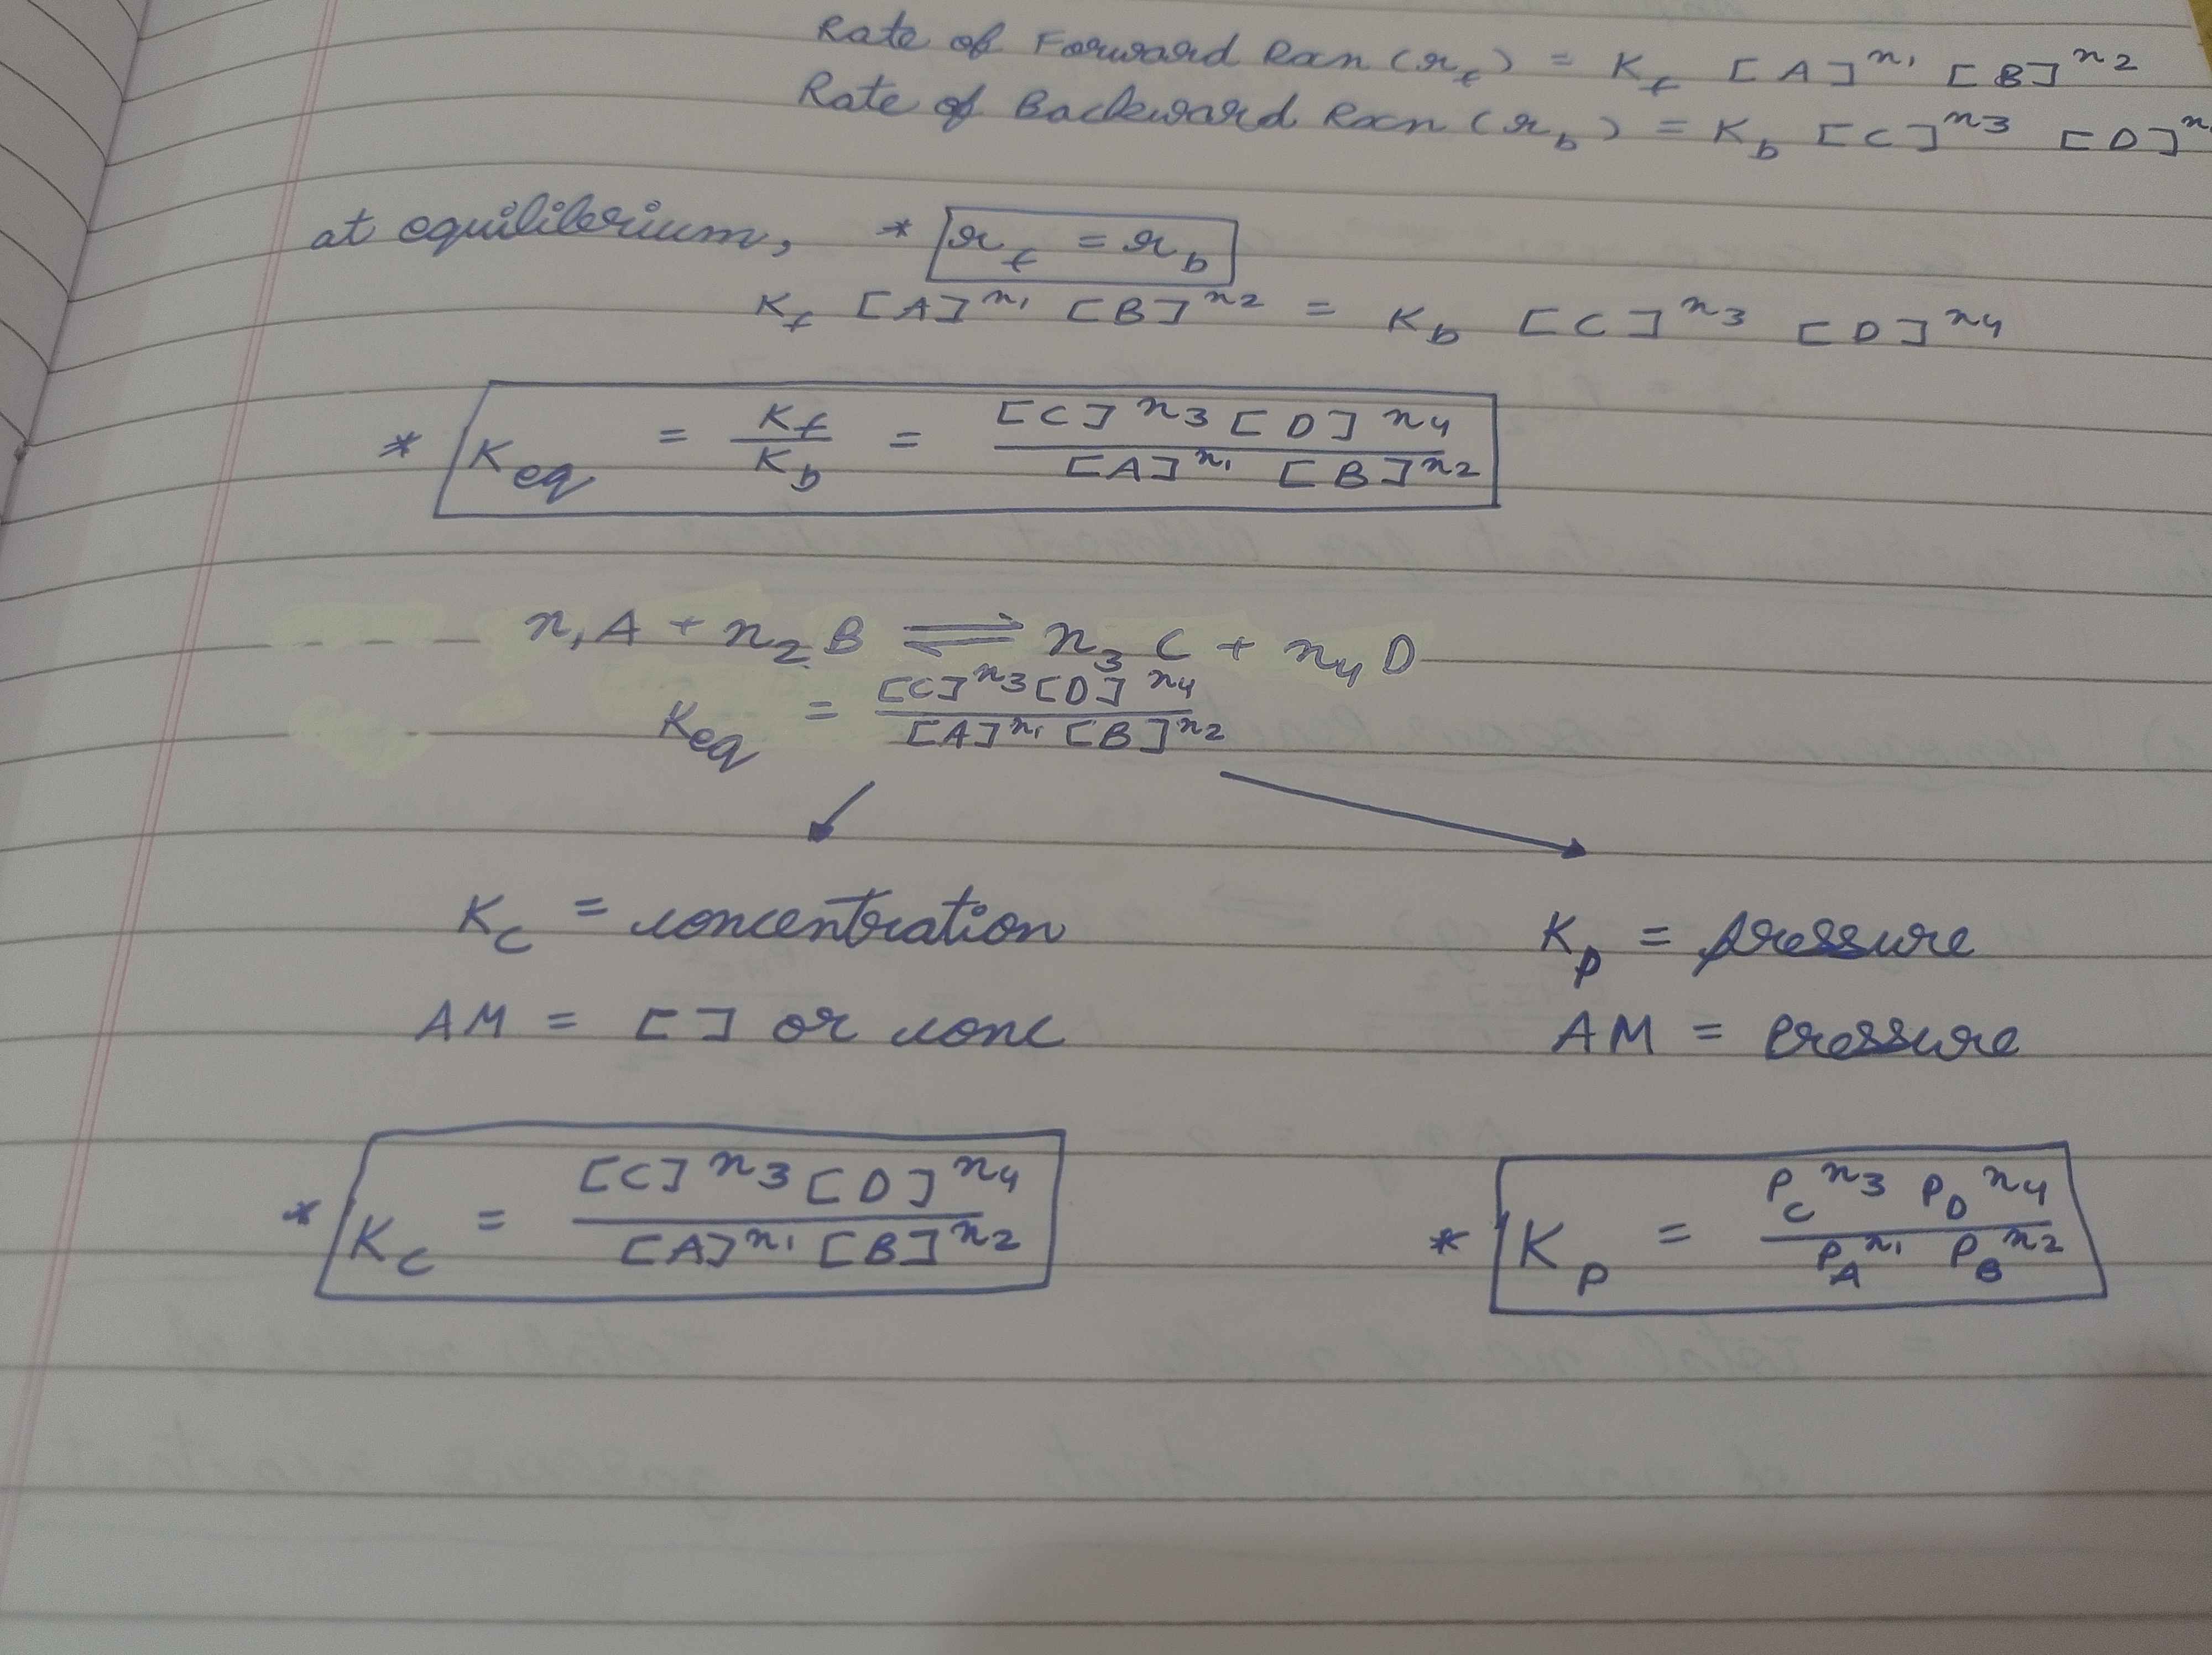 Rate of Forward Rxn (r_f) = K_f [A]^n1 [B]^n2
Rate of Backward Rxn (r_b) = K_b [C]^n3 [D]^n
at equilibrium, * r_f = r_b
K_f [A]^n1 [B]^n2 = K_b [C]^n3 [D]^n4
* K_eq = K_f / K_b = [C]^n3 [D]^n4 / [A]^n1 [B]^n2
n1 A + n2 B ⇌ n3 C + n4 D
K_eq = [C]^n3 [D]^n4 / [A]^n1 [B]^n2
K_c = concentration K_p = pressure
AM = [ ] or conc AM = Pressure
* K_c = [C]^n3 [D]^n4 / [A]^n1 [B]^n2 * K_p = P_C^n3 P_D^n4 / P_A^n1 P_B^n2